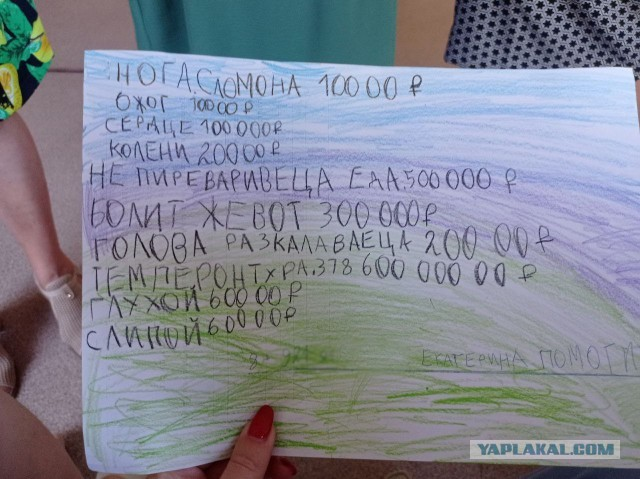 НОГА СЛОМОНА 10000 ₽
ОЖОГ 10000₽
СЕРДЦЕ 100000₽
КОЛЕНИ 20000₽
НЕ ПИРЕВАРИВЕЦА ЕДА.500000 ₽
БОЛИТ ЖЕВОТ 300000₽
ГОЛОВА РАЗКАЛАВАЕЦА 20000 ₽
ТЕМПЕРОНТ 60000000 ₽
ГЛУХОЙ 60000₽
СЛИПОЙ 60000₽
ЕКАТЕРИНА ПОМОГИ
YAPLAKAL.COM